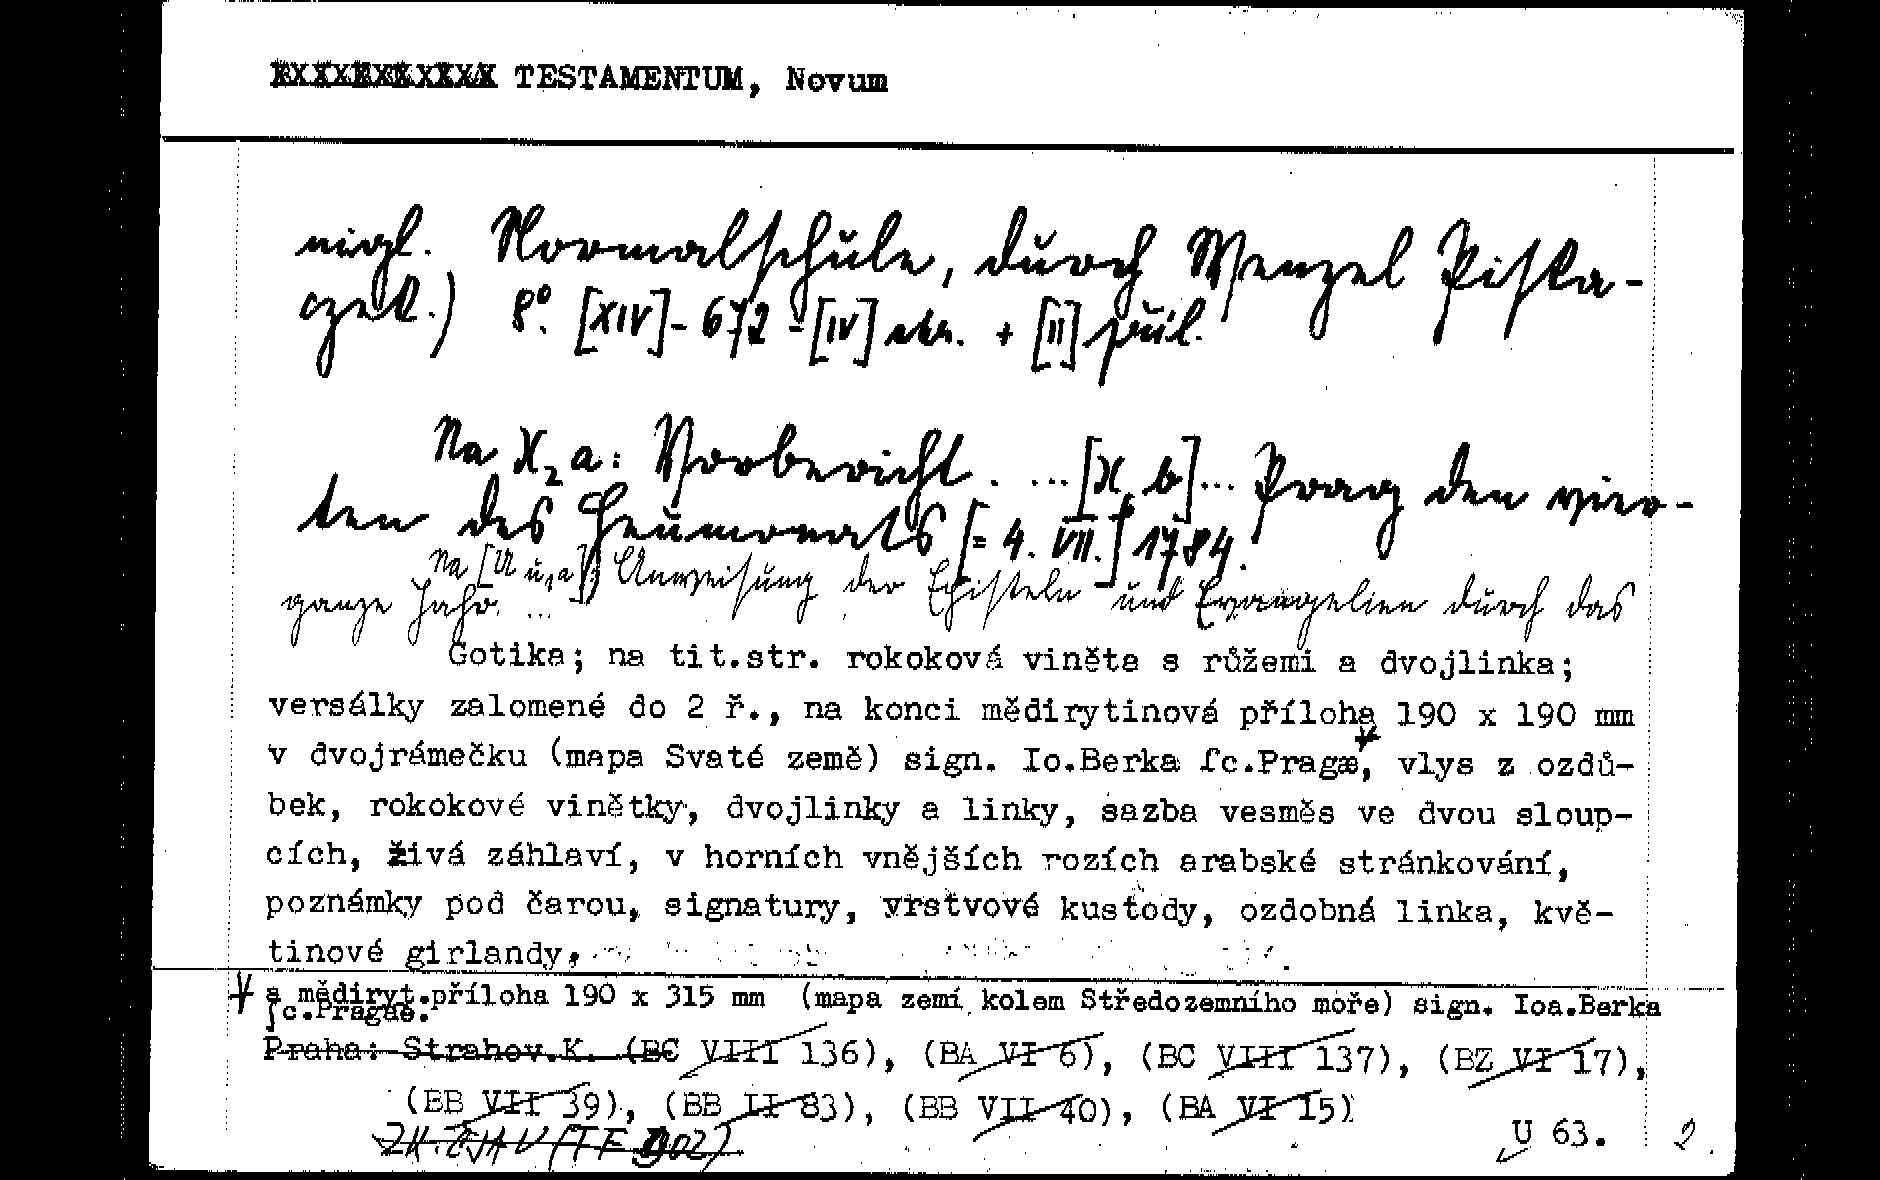 TESTAMENTUM, Novum
nigl. Normalschule, durch Wenzel Piska-
czek.) 8°. [XIV]-672-[IV] str. + [II] příl.
Na X2a: Vorbericht. ...[X b]... Prag den vier-
ten des Heumonats [= 4. VII.] 1784.
Na [U u1a]: Anweisung der Episteln und Evangelien durch das
ganze Jahr. ...
Gotika; na tit.str. rokoková viněta s růžemi a dvojlinka;
versálky zalomené do 2 ř., na konci mědirytinová příloha 190 x 190 mm
v dvojrámečku (mapa Svaté země) sign. Io.Berka ſc.Pragæ, vlys z ozdů-
bek, rokokové vinětky, dvojlinky a linky, sazba vesměs ve dvou sloup-
cích, živá záhlaví, v horních vnějších rozích arabské stránkování,
poznámky pod čarou, signatury, vrstvové kustody, ozdobná linka, kvě-
tinové girlandy.
a mědiryt.příloha 190 x 315 mm (mapa zemí kolem Středozemního moře) sign. Ioa.Berka
ſc.Pragae.
Praha: Strahov.K. (BC VIII 136), (BA VI 6), (BC VIII 137), (BZ VI 17),
(BB VII 39), (BB II 83), (BB VII 40), (BA VI 15)
U 63. 2.